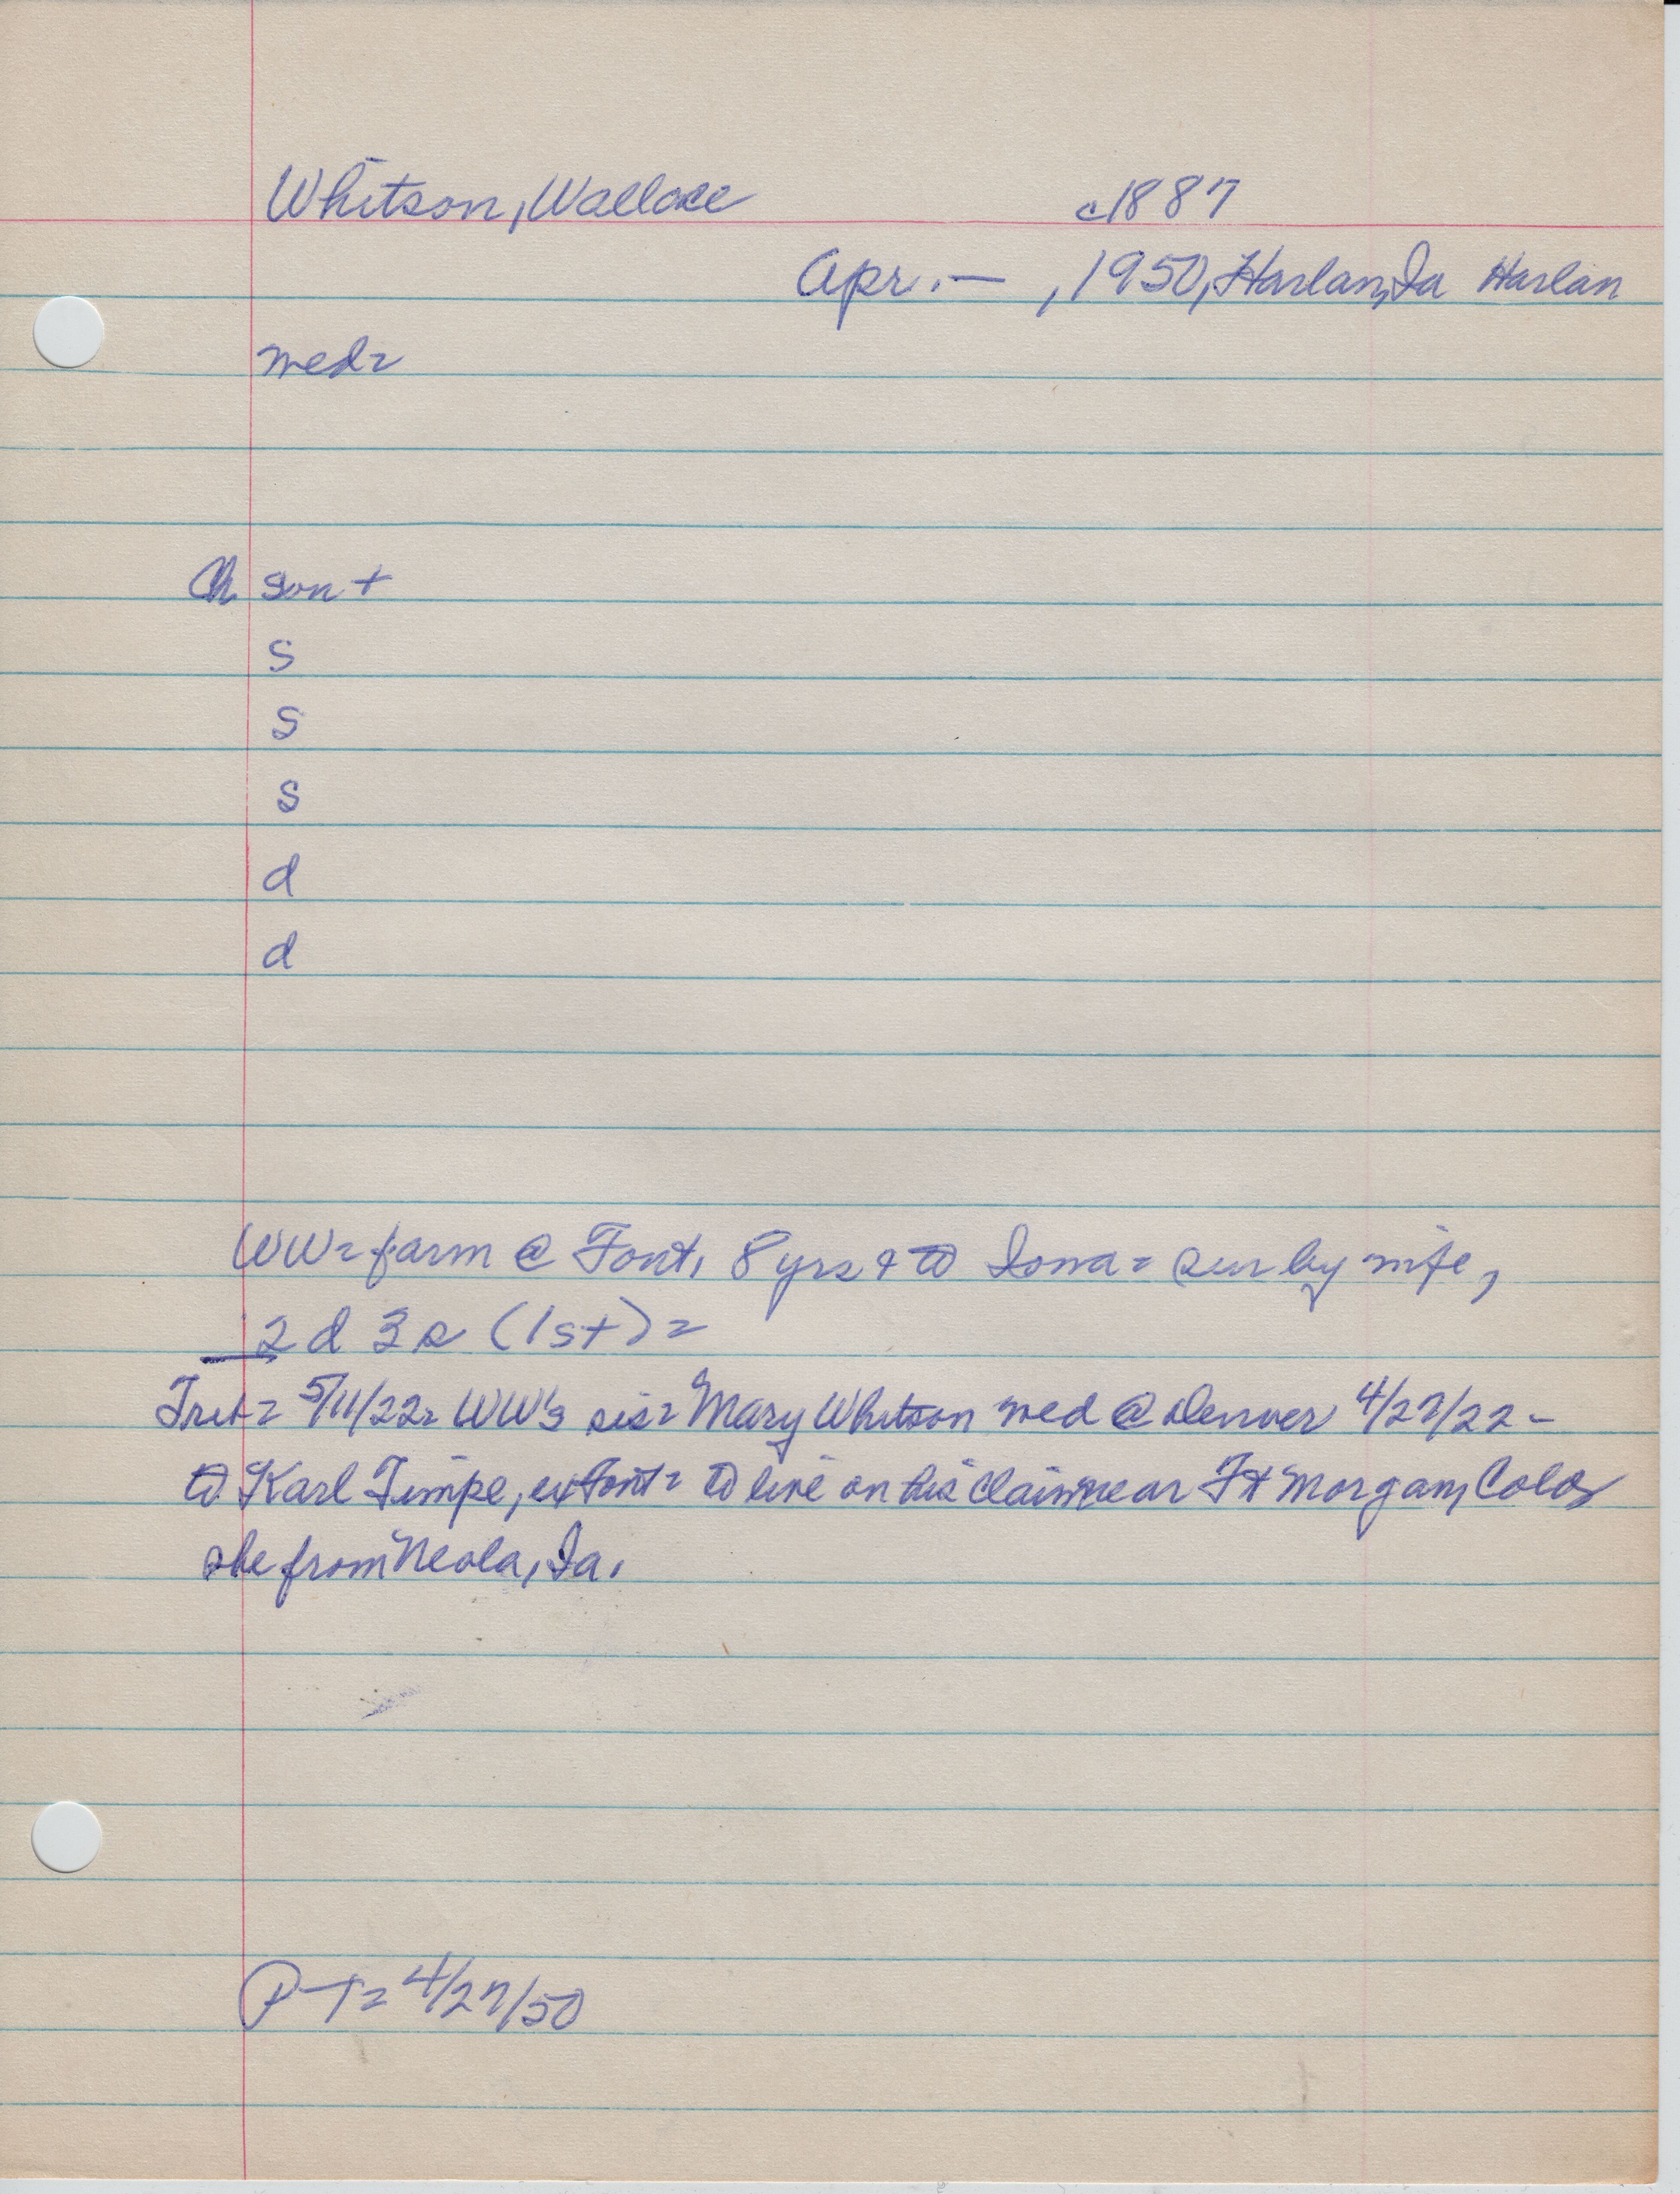 Whitson, Wallace c1887
Apr. — , 1950, Harlan, Ia Harlan
med=
Ch son +
S
S
S
d
d
WW= farm @ Font, 8 yrs & to Iowa = sur by wife,
2 d 3 s (1s+) =
Trib= 5/11/22= WW's sis= Mary Whitson med @ Denver 4/27/22 -
to Karl Timpe, ex Font= to live on his claim near Ft Morgan, Colo
she from Neola, Ia.
P-T= 4/27/50